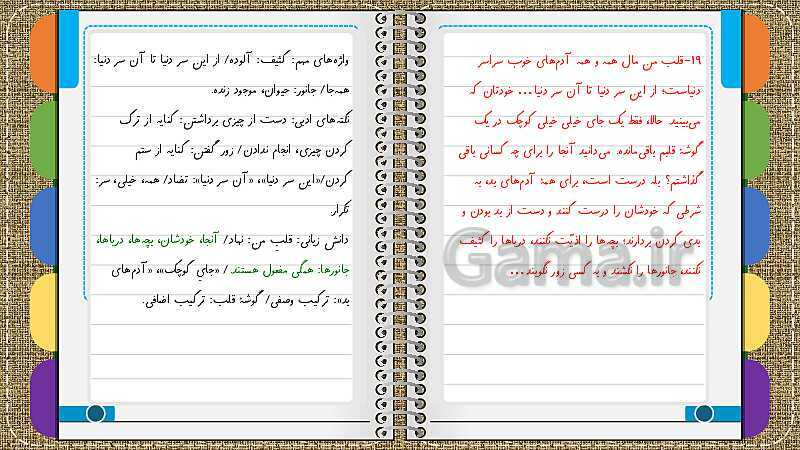 ۱۹-قلب من مال همه و همهٔ آدم‌های خوب سراسر
دنیاست؛ از این سر دنیا تا آن سر دنیا... خودتان که
می‌بینید. حالا، فقط یک جای خیلی خیلی کوچک در یک
گوشهٔ قلبم باقی‌مانده. می‌دانید آنجا را برای چه کسانی باقی
گذاشتم؟ بله درست است، برای همهٔ آدم‌های بد، به
شرطی که خودشان را درست کنند و دست از بد بودن و
بدی کردن بردارند؛ بچه‌ها را اذیّت نکنند، دریاها را کثیف
نکنند، جانورها را نکشند و به کسی زور نگویند...
واژه‌های مهم: کثیف: آلوده/ از این سر دنیا تا آن سر دنیا:
همه‌جا/ جانور: حیوان، موجود زنده.
نکته‌های ادبی: دست از چیزی برداشتن: کنایه از ترک
کردن چیزی، انجام ندادن/ زور گفتن: کنایه از ستم
کردن/«این سر دنیا»، «آن سر دنیا»: تضاد/ همه، خیلی، سر:
تکرار.
دانش زبانی: قلب من: نهاد/ آنجا، خودشان، بچه‌ها، دریاها،
جانورها: همگی مفعول هستند/ «جایِ کوچک»، «آدم‌های
بد»: ترکیب وصفی/ گوشهٔ قلب: ترکیب اضافی.
Gama.ir